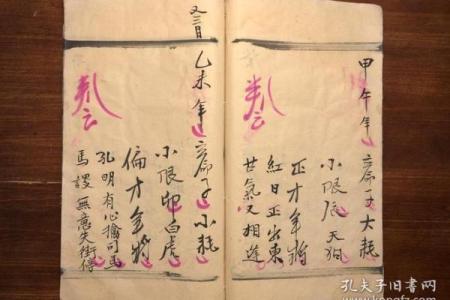 甲午年 六命子 大耗
小限辰 天狗
正才年將
紅日正出東
世氣又相逢
卦云
又三曰
乙未年 六命子 小耗
小限卯白虎
偏才年將
孔明有心擒司馬
馬謖無意失街停
卦云
孔夫子旧书网